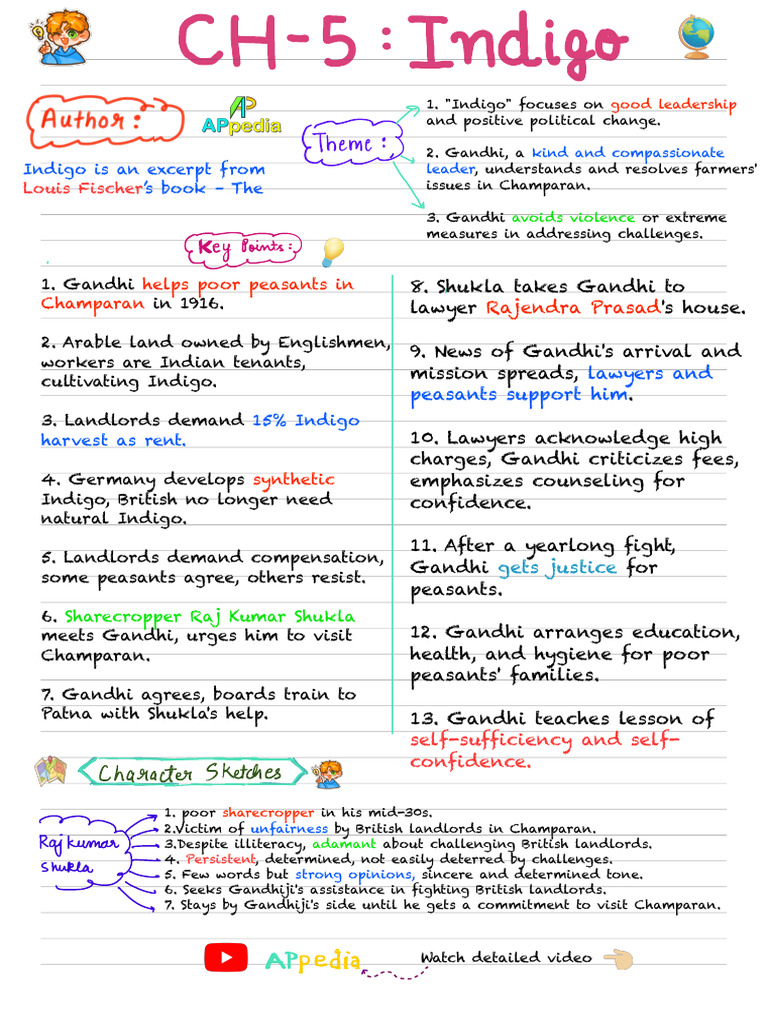 CH-5 : Indigo
Author :
APpedia
Indigo is an excerpt from
Louis Fischer's book – The
Theme :
1. "Indigo" focuses on good leadership
and positive political change.
2. Gandhi, a kind and compassionate
leader, understands and resolves farmers'
issues in Champaran.
3. Gandhi avoids violence or extreme
measures in addressing challenges.
Key Points :
1. Gandhi helps poor peasants in
Champaran in 1916.
2. Arable land owned by Englishmen,
workers are Indian tenants,
cultivating Indigo.
3. Landlords demand 15% Indigo
harvest as rent.
4. Germany develops synthetic
Indigo, British no longer need
natural Indigo.
5. Landlords demand compensation,
some peasants agree, others resist.
6. Sharecropper Raj Kumar Shukla
meets Gandhi, urges him to visit
Champaran.
7. Gandhi agrees, boards train to
Patna with Shukla's help.
8. Shukla takes Gandhi to
lawyer Rajendra Prasad's house.
9. News of Gandhi's arrival and
mission spreads, lawyers and
peasants support him.
10. Lawyers acknowledge high
charges, Gandhi criticizes fees,
emphasizes counseling for
confidence.
11. After a yearlong fight,
Gandhi gets justice for
peasants.
12. Gandhi arranges education,
health, and hygiene for poor
peasants' families.
13. Gandhi teaches lesson of
self-sufficiency and self-
confidence.
Character Sketches
Raj kumar
Shukla
1. poor sharecropper in his mid-30s.
2.Victim of unfairness by British landlords in Champaran.
3.Despite illiteracy, adamant about challenging British landlords.
4. Persistent, determined, not easily deterred by challenges.
5. Few words but strong opinions, sincere and determined tone.
6. Seeks Gandhiji's assistance in fighting British landlords.
7. Stays by Gandhiji's side until he gets a commitment to visit Champaran.
APpedia
Watch detailed video